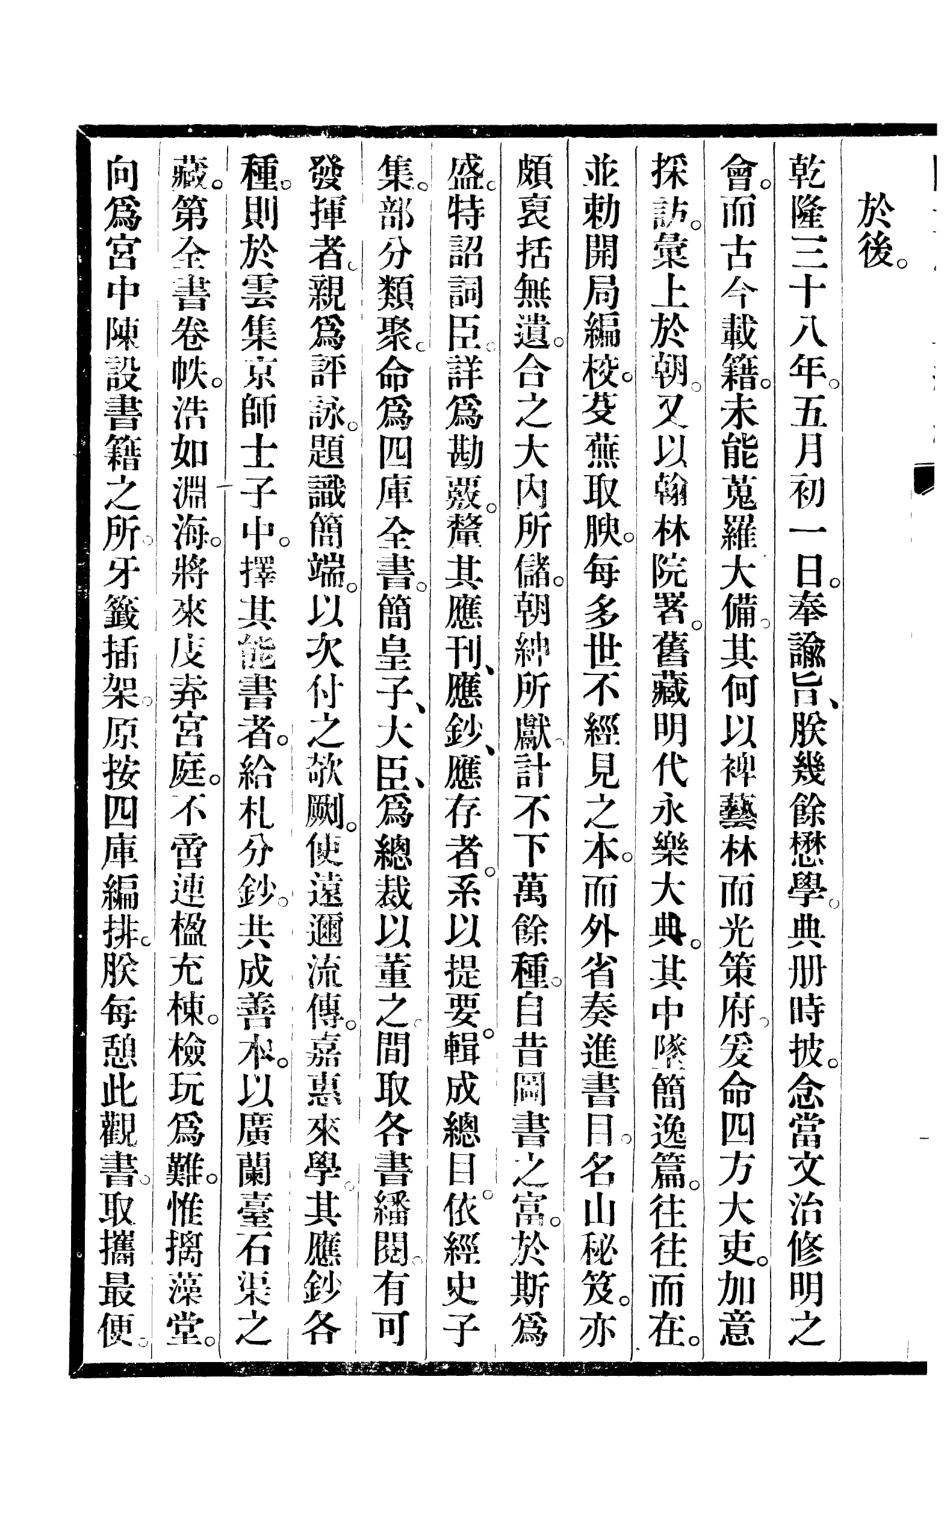 於後。
乾隆三十八年。五月初一日。奉諭旨、朕幾餘懋學。典册時披。念當文治修明之
會。而古今載籍。未能蒐羅大備。其何以裨藝林而光策府。爰命四方大吏。加意
採訪。彙上於朝。又以翰林院署。舊藏明代永樂大典。其中墜簡逸篇。往往而在。
並勅開局編校。芟蕪取腴。每多世不經見之本。而外省奏進書目。名山秘笈。亦
頗裒括無遺。合之大內所儲。朝紳所獻。計不下萬餘種。自昔圖書之富。於斯為
盛。特詔詞臣。詳爲勘覈。釐其應刊、應鈔、應存者。系以提要。輯成總目。依經史子
集。部分類聚。命爲四庫全書。簡皇子、大臣、爲總裁以董之。間取各書繙閱。有可
發揮者。親爲評詠。題識簡端。以次付之剞劂。使遠邇流傳。嘉惠來學。其應鈔各
種。則於雲集京師士子中。擇其能書者。給札分鈔。共成善本。以廣蘭臺石渠之
藏。第全書卷帙。浩如淵海。將來庋弆宮庭。不啻連楹充棟。檢玩爲難。惟摛藻堂。
向爲宮中陳設書籍之所。牙籤插架。原按四庫編排。朕每憩此觀書。取攜最便。